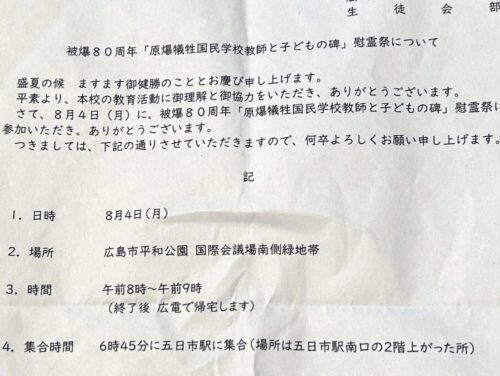 生 徒 会 部
被爆８０周年「原爆犠牲国民学校教師と子どもの碑」慰霊祭について
盛夏の候　ますます御健勝のこととお慶び申し上げます。
平素より、本校の教育活動に御理解と御協力をいただき、ありがとうございます。
さて、８月４日（月）に、被爆８０周年「原爆犠牲国民学校教師と子どもの碑」慰霊祭に
参加いただき、ありがとうございます。
つきましては、下記の通りさせていただきますので、何卒よろしくお願い申し上げます。
記
１．日時　８月４日（月）
２．場所　広島市平和公園 国際会議場南側緑地帯
３．時間　午前８時～午前９時
（終了後 広電で帰宅します）
４．集合時間　６時４５分に五日市駅に集合（場所は五日市駅南口の２階上がった所）